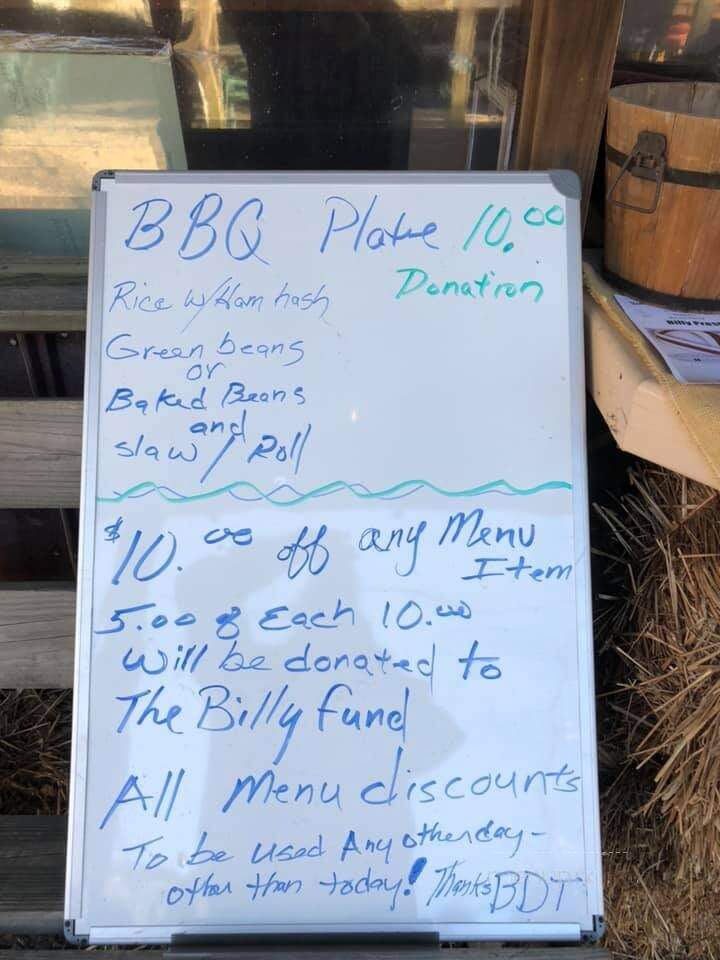 BBQ Plate 10.00
Donation
Rice w/Ham hash
Green beans
or
Baked Beans
and
slaw / Roll
$10.00 off any Menu
Item
5.00 of Each 10.00
will be donated to
The Billy fund
All Menu discounts
To be used Any other day -
other than today! Thanks BDT
Billy